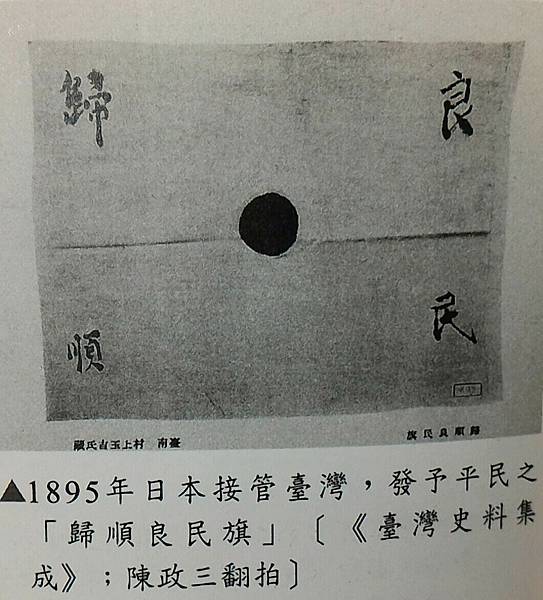 良民
歸順
旗民良順歸
藏氏吉玉上村 南臺
▲1895年日本接管臺灣，發予平民之
「歸順良民旗」〔《臺灣史料集
成》；陳政三翻拍〕